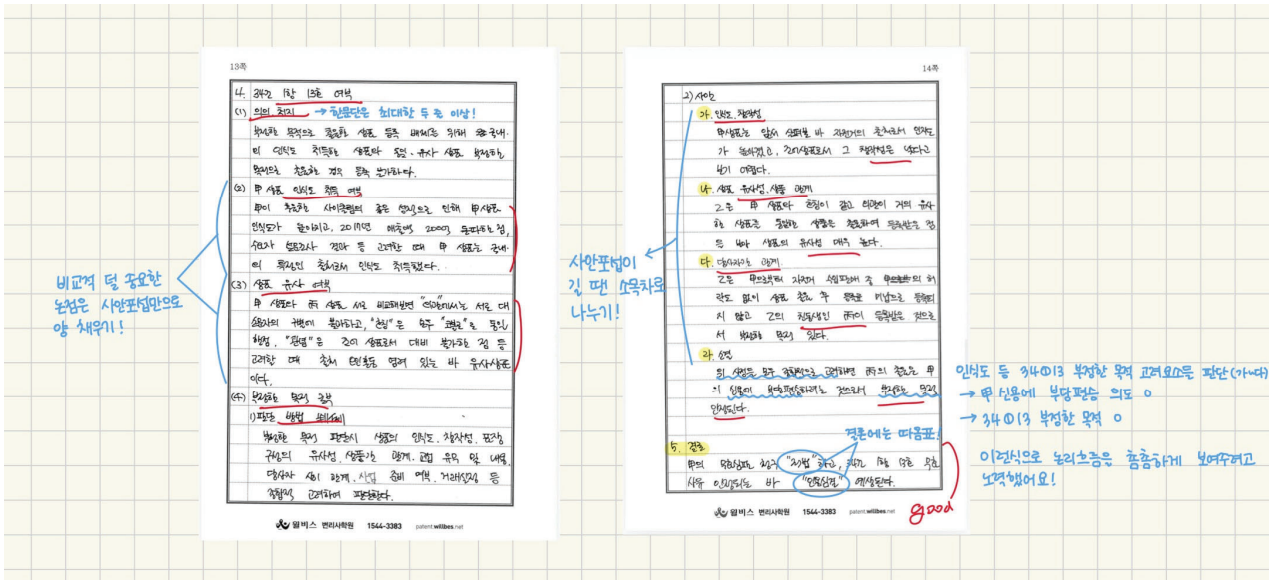 13쪽
4. 34조 1항 13호 여부
(1) 의의 취지 → 한문단은 최대한 두 줄 이상!
부정한 목적으로 출원한 상표 등록 배제를 위해 국내·
외 인식도 취득한 상표와 동일·유사 상표 부정한
목적으로 출원한 경우 등록 불가하다.
(2) 甲 상표 인식도 취득 여부
甲이 후원한 사이클팀의 좋은 성적으로 인해 甲상표
인식도가 높아지고, 2017년 매출액 200억 돌파한 점,
수요자 설문조사 결과 등 고려할 때 甲 상표는 국내·
외 특정인 출처로서 인식도 취득했다.
(3) 상표 유사 여부
甲 상표와 丙 상표 서로 비교해보면 "외관"에서는 서로 대
소문자의 구별에 불과하고, "호칭"은 모두 로 동일
하며, "관념"은 조어 상표로서 대비 불가한 점 등
고려할 때 출처 오인혼동 염려 있는 바 유사상표
이다.
(4) 부정한 목적 판부
1) 판단 방법
부정한 목적 판단시 상표의 인식도, 창작성, 표장
구성의 유사성, 상품간 관계, 교섭 유무 및 내용,
당사자 사이 관계, 사업 준비 여부, 거래실정 등
종합적 고려하여 판단한다.
윌비스 변리사학원 1544-3383 patent.willbes.net
비교적 덜 중요한
논점은 사안포섭만으로
양 채우기!
14쪽
2) 사안
가. 인식도, 창작성
甲상표는 앞서 살펴본 바 자전거의 출처로서 인식도
가 높아졌고, 조어상표로서 그 창작성은 낮다고
보기 어렵다.
나. 상표 유사성, 상품 관계
乙은 甲 상표와 호칭이 같고 외관이 거의 유사
한 상표를 동일한 상품은 출원하여 등록받은 점
등 상표의 유사성 매우 높다.
다. 당사자간 관계
乙은 甲으로부터 자전거 수입판매 중 허
락도 없이 상표 출원 후 미납으로 등록되
지 않고 乙의 친동생인 丙이 등록받은 것으로
서 부정한 목적 있다.
라. 소결
위 사정을 모두 종합적으로 고려하면 丙의 출원은 甲
의 신용에 부당편승하려는 것으로서 부정한 목적
인정된다.
5. 결론
甲의 무효심판 청구 "적법"하고, 34조 1항 13호 무효
사유 인정되는 바 "인용심결" 예상된다.
윌비스 변리사학원 1544-3383 patent.willbes.net
사안포섭이
길 땐 소목차로
나누기!
결론에는 따옴표!
good
인식도 등 34①13 부정한 목적 고려요소로 판단(가~다)
→ 甲 신용에 부당편승 의도 O
→ 34①13 부정한 목적 O
이런식으로 논리흐름을 촘촘하게 보여주려고
노력했어요!